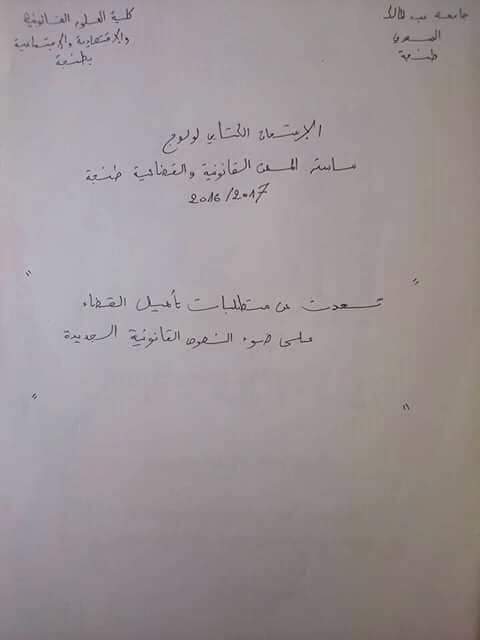 جامعة عبد المالك
السعدي
طنجة
كلية العلوم القانونية
والاقتصادية والاجتماعية
بطنجة
الامتحان الكتابي لولوج
ماستر المهن القانونية والقضائية طنجة
2016/2017
" تحدث عن متطلبات تأهيل القضاء "
" على ضوء النصوص القانونية الجديدة "